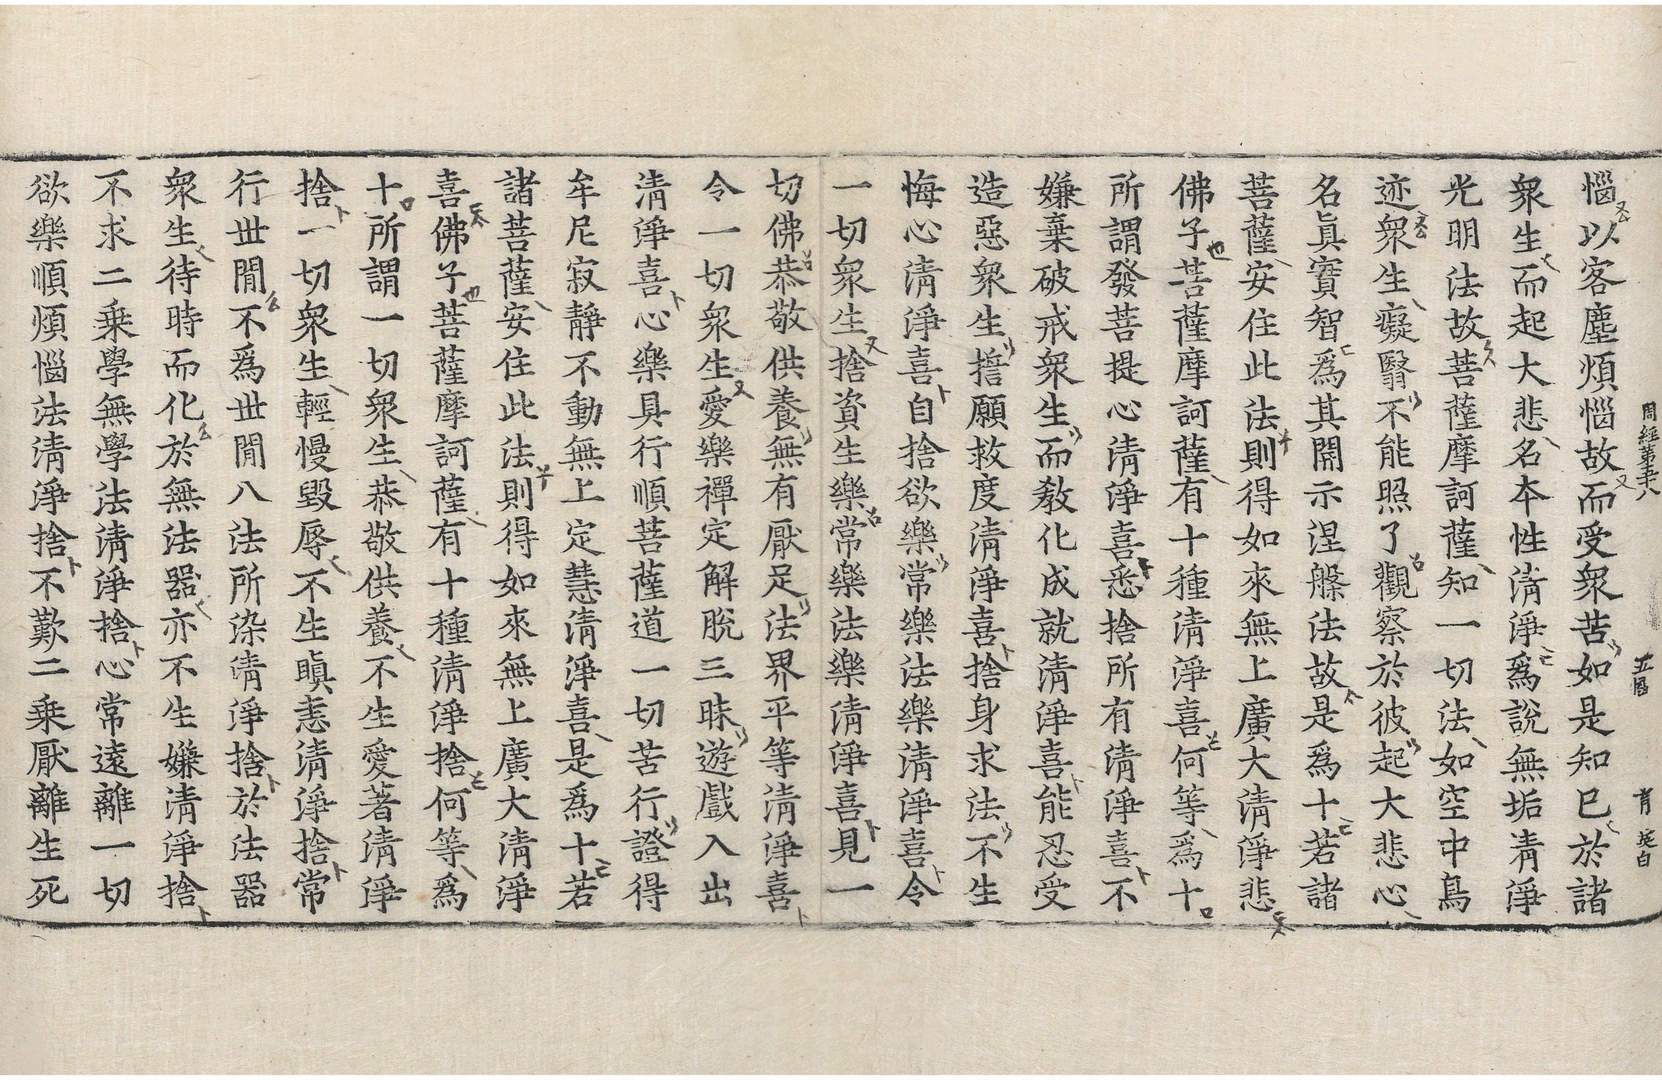 周經第五十八
五
肯
惱以客塵煩惱故而受衆苦如是知已於諸
衆生而起大悲名本性淸淨爲說無垢淸淨
光明法故菩薩摩訶薩知一切法如空中鳥
迹衆生癡翳不能照了觀察於彼起大悲心
名眞實智爲其開示涅槃法故是爲十若諸
菩薩安住此法則得如來無上廣大淸淨悲
佛子菩薩摩訶薩有十種淸淨喜何等爲十
所謂發菩提心淸淨喜悉捨所有淸淨喜不
嫌棄破戒衆生而敎化成就淸淨喜能忍受
造惡衆生誓願救度淸淨喜捨身求法不生
悔心淸淨喜自捨欲樂常樂法樂淸淨喜令
一切衆生捨資生樂常樂法樂淸淨喜見一
切佛恭敬供養無有厭足法界平等淸淨喜
令一切衆生愛樂禪定解脫三昧遊戱入出
淸淨喜心樂具行順菩薩道一切苦行證得
牟尼寂靜不動無上定慧淸淨喜是爲十若
諸菩薩安住此法則得如來無上廣大淸淨
喜佛子菩薩摩訶薩有十種淸淨捨何等爲
十所謂一切衆生恭敬供養不生愛著淸淨
捨一切衆生輕慢毁辱不生瞋恚淸淨捨常
行世閒不爲世閒八法所染淸淨捨於法器
衆生待時而化於無法器亦不生嫌淸淨捨
不求二乘學無學法淸淨捨心常遠離一切
欲樂順煩惱法淸淨捨不歎二乘厭離生死